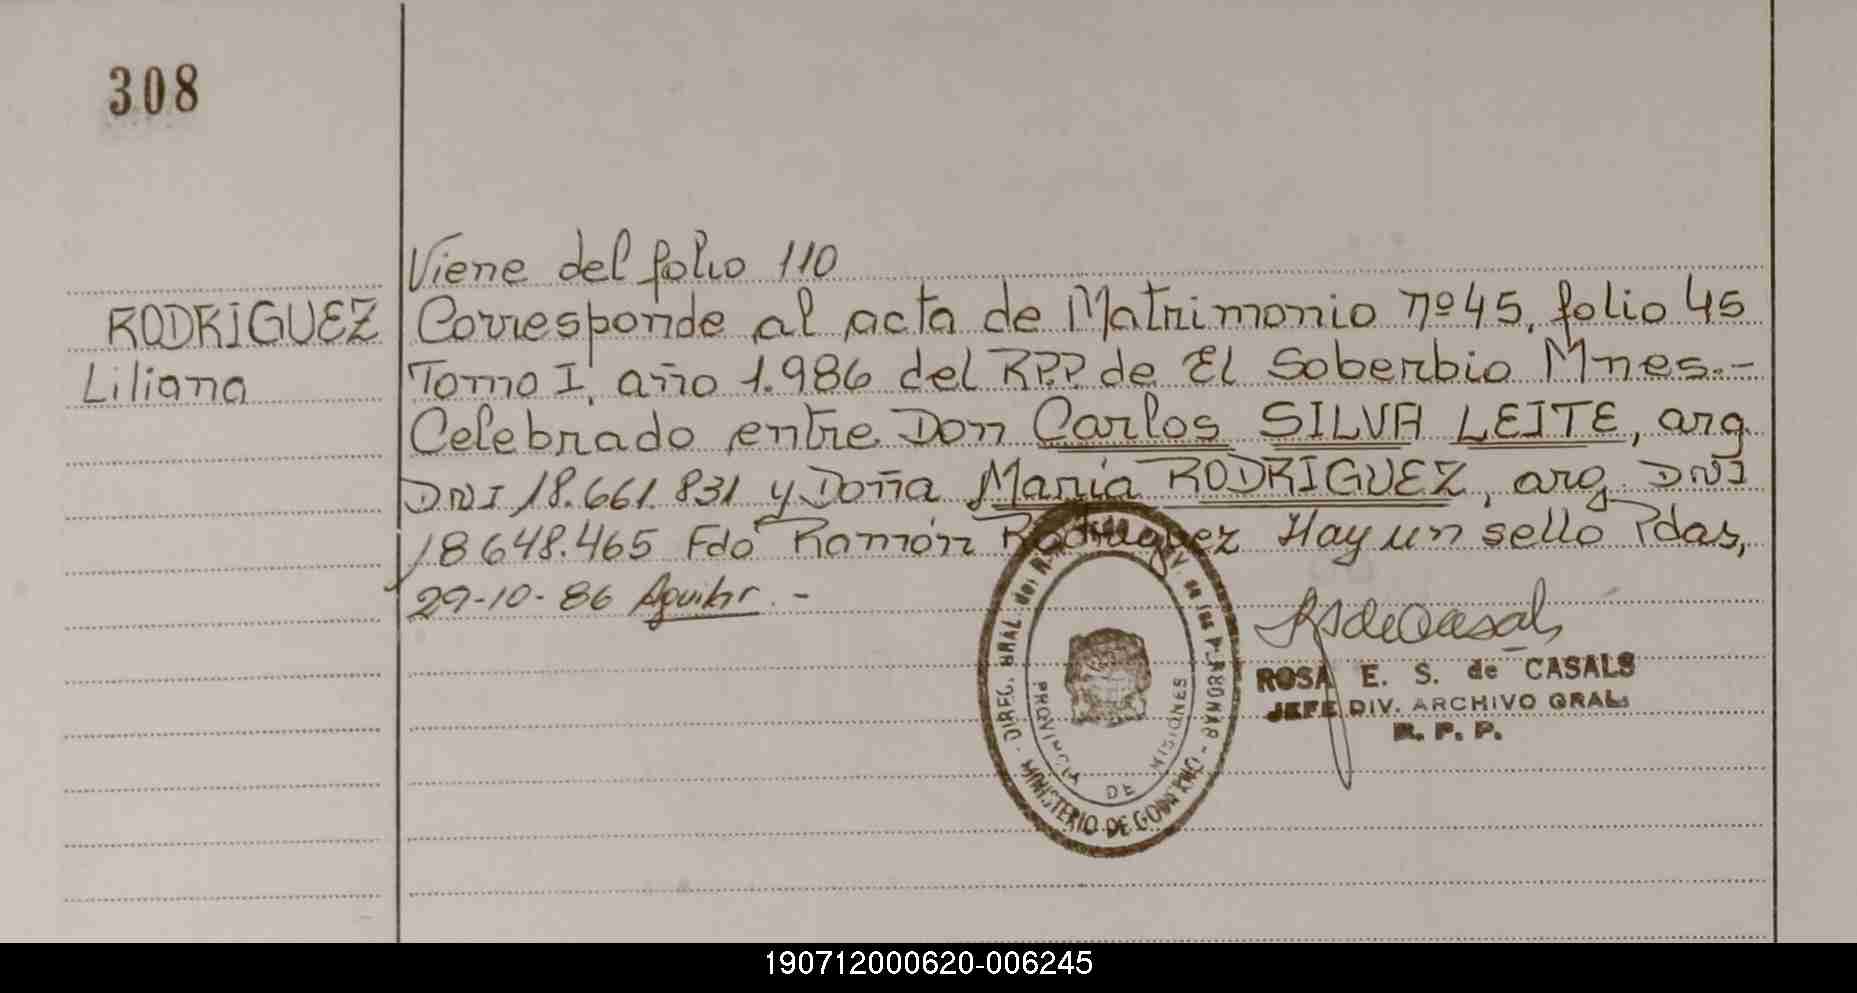 308
RODRIGUEZ
Liliana
Viene del folio 110
Corresponde al acta de Matrimonio nº 45, folio 45
Tomo I, año 1.986 del R.P.P. de El Soberbio Mnes.-
Celebrado entre Don Carlos SILVA LEITE, arg.
DNI 18.661.831 y Doña María RODRIGUEZ, arg. DNI
18648.465 Fdo Ramón Rodriguez Hay un sello Pdas,
29-10-86 Aguilar.-
DIREC. GRAL. del R. de las PERSONAS - MINISTERIO DE GOBIERNO -
PROVINCIA DE MISIONES
ROSA E. S. de CASALS
JEFE DIV. ARCHIVO GRAL.
R. P. P.
190712000620-006245